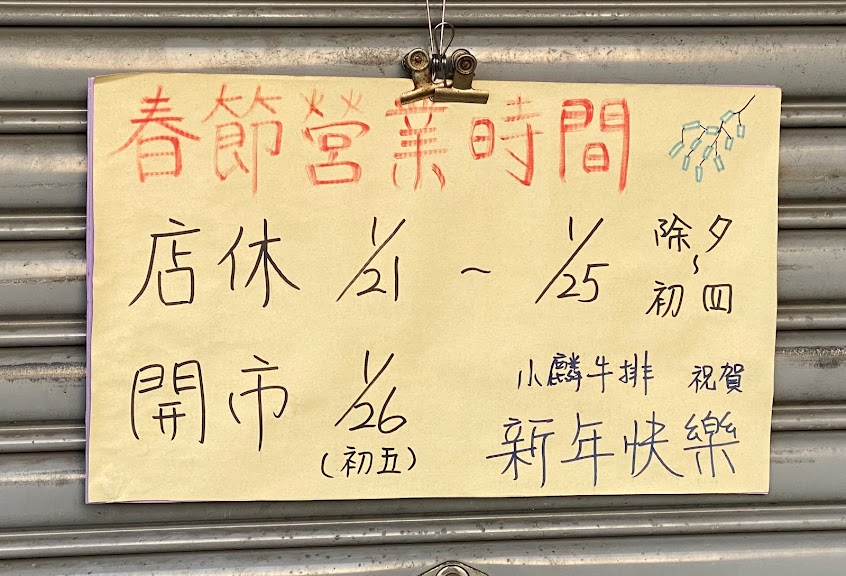 春節營業時間
店休 1/21 ~ 1/25 除夕~初四
開市 1/26 (初五)
小麟牛排 祝賀
新年快樂